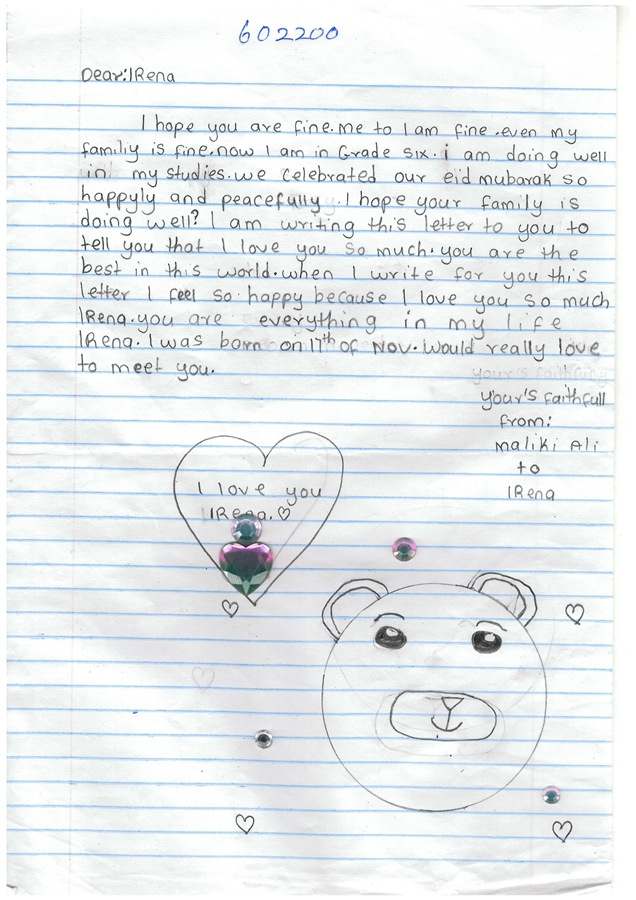 602200
Dear:IRena
I hope you are fine.me to I am fine.even my
familiy is fine.now I am in Grade six.i am doing well
in my studies.we celebrated our eid mubarak so
happyly and peacefully.I hope your family is
doing well? I am writing this letter to you to
tell you that I love you so much.you are the
best in this world.when I write for you this
letter I feel so happy because I love you so much
IRena.you are everything in my life
IRena.I was born on 17th of Nov.would really love
to meet you.
your's faithfull
from:
maliki Ali
to
IRena
I love you
IRena.♡